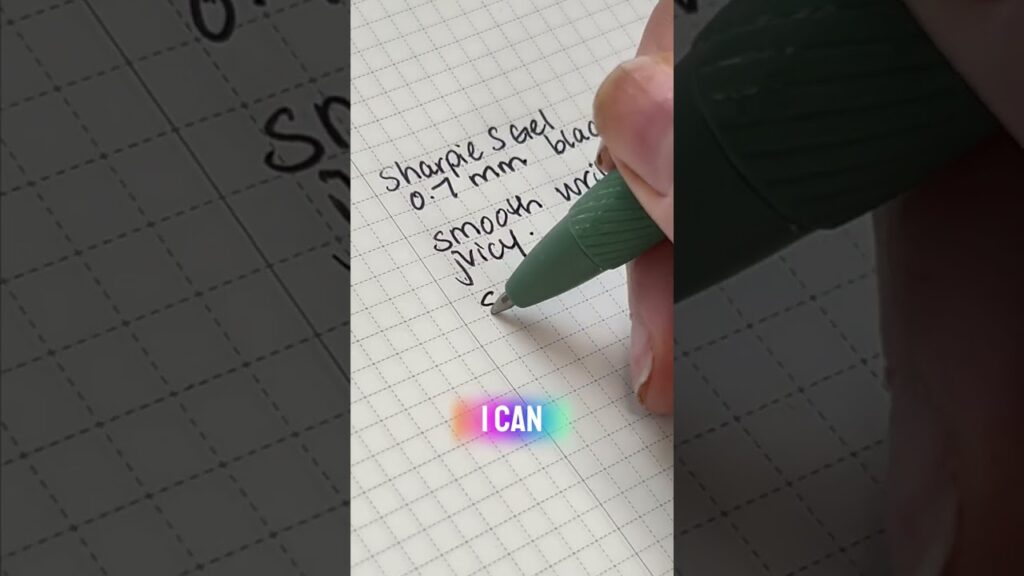 sharpie S Gel
0.7 mm blac
smooth wri
juicy.
s
I CAN